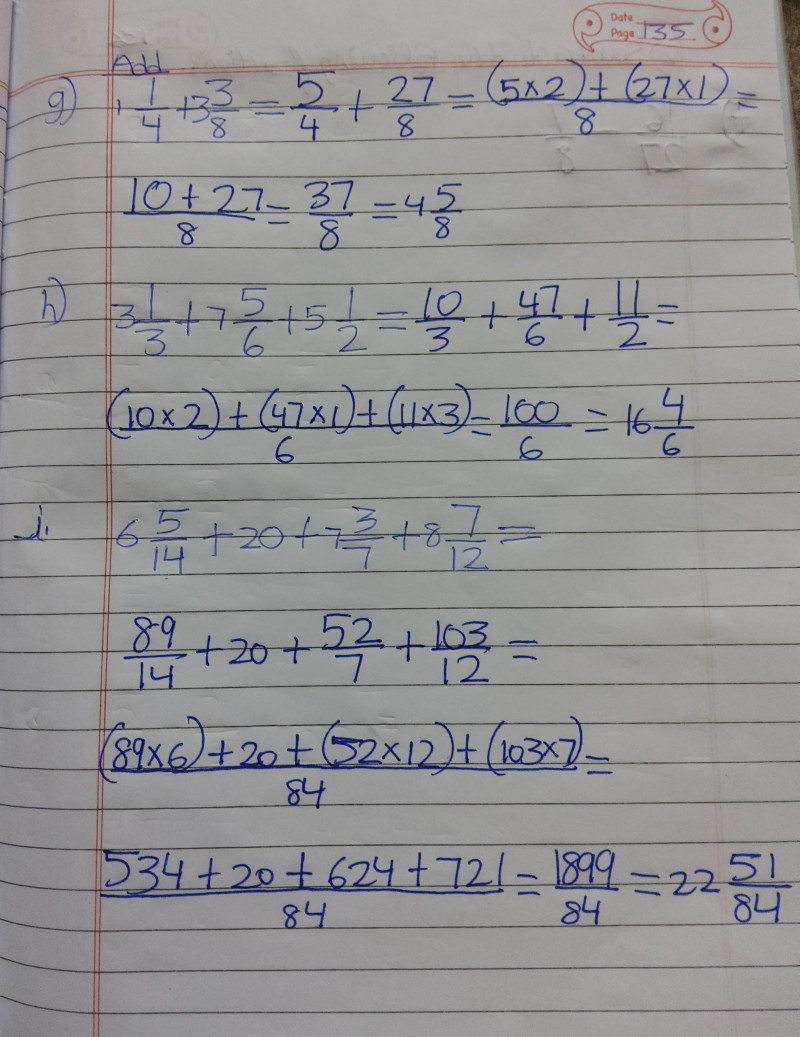 Date
Page 135
Add
g) 1 1/4 + 3 3/8 = 5/4 + 27/8 = (5×2)+(27×1)/8 =
10+27/8 = 37/8 = 4 5/8
h) 3 1/3 + 7 5/6 + 5 1/2 = 10/3 + 47/6 + 11/2 =
(10×2)+(47×1)+(11×3)/6 = 100/6 = 16 4/6
i. 6 5/14 + 20 + 7 3/7 + 8 7/12 =
89/14 + 20 + 52/7 + 103/12 =
(89×6)+20+(52×12)+(103×7)/84 =
534+20+624+721/84 = 1899/84 = 22 51/84